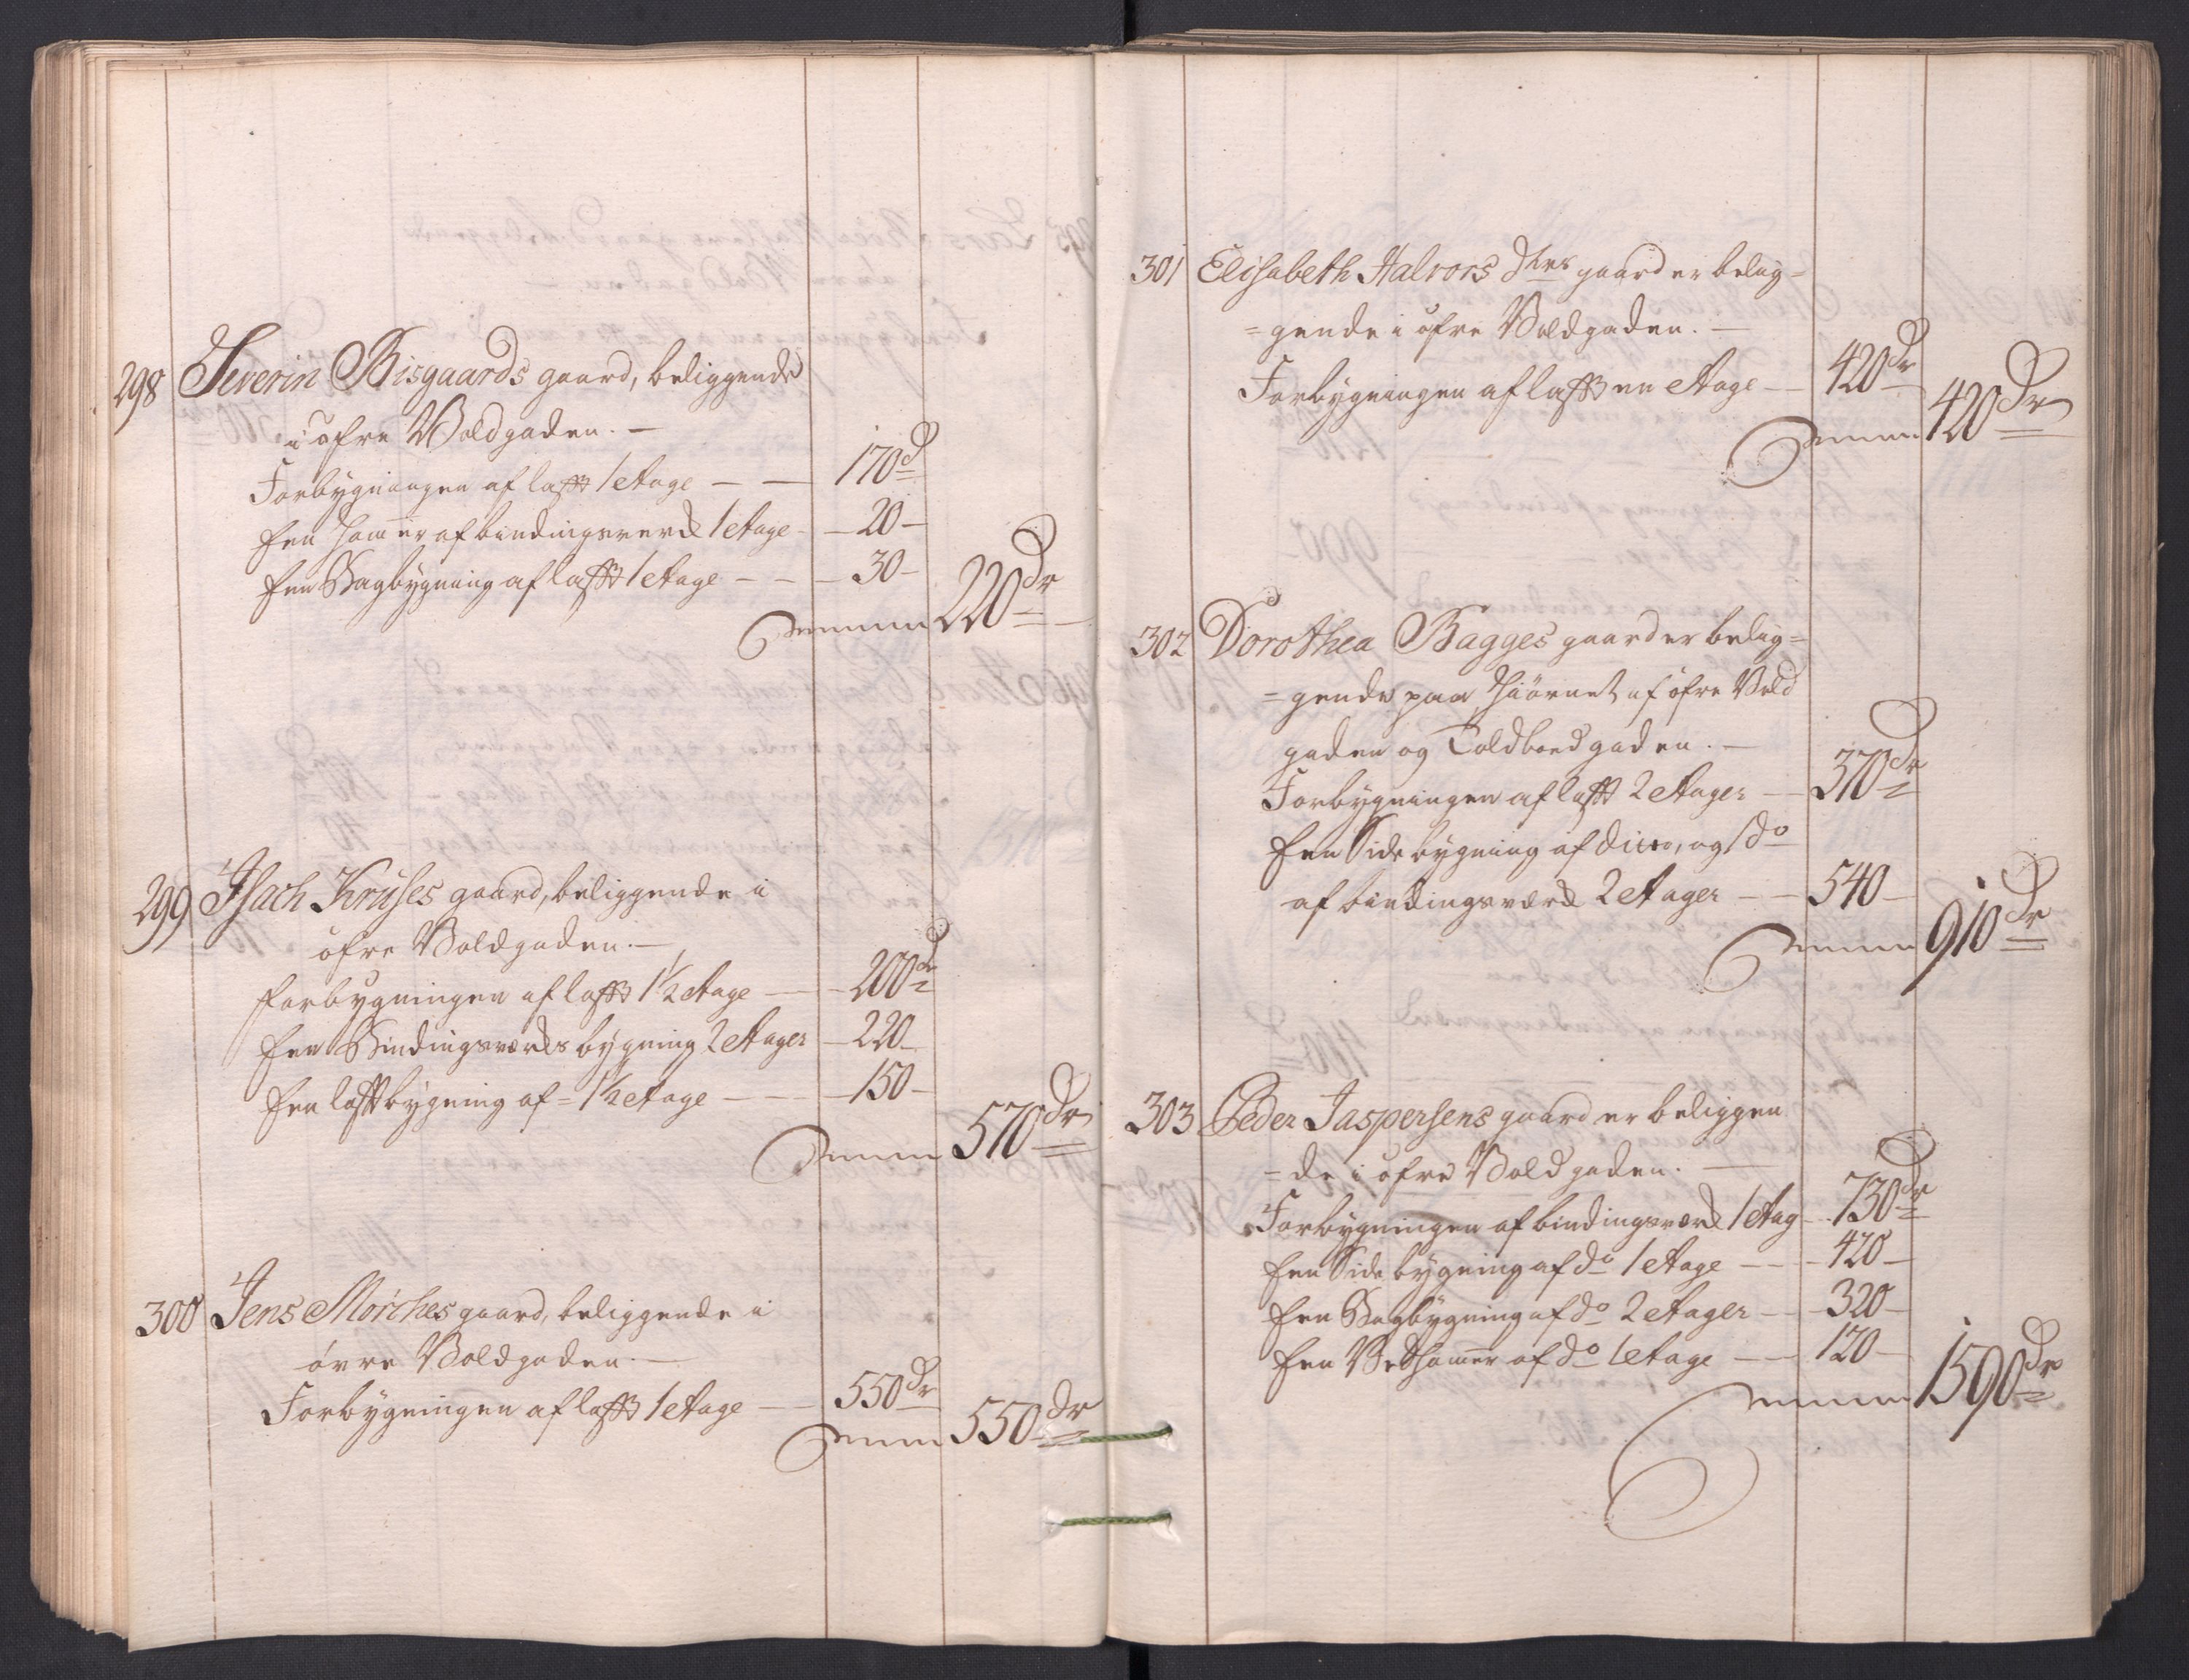 298 Severin Bisgaards gaard, beliggende
i øfre Voldgaden. —
Forbygningen af lafft 1 Etage — — 170 d
Een Hammer af bindingsverck 1 Etage - — 20 —
Een Bagbygning af lafft 1 Etage — — — 30 —
Summa 220 dr
299 Isach Kruses gaard, beliggende i
øfre Voldgaden. —
Forbygningen af lafft 1½ Etage — — 200 dr
Een Bindingsværcks bygning 2 Etager — 220 —
Een lafftbygning af = 1½ Etage — — — 150 —
Summa 570 dr
300 Jens Mørches gaard, beliggende i
øvre Voldgaden. —
Forbygningen af lafft 1 Etage — 550 dr
Summa 550 dr
301 Elisabeth Halvors dtrs gaard er belig=
=gende i øfre Voldgaden. —
Forbygningen af lafft en Etage — 420 dr
Summa 420 dr
302 Dorothea Bagges gaard er belig=
=gende paa Hiørnet af øfre Vold
gaden og Toldboed gaden. —
Forbygningen af lafft 2 Etager — 370 dr
Een Side bygning af dito, og 1 do
af bindingsværck 2 Etager — — 540 —
Summa 910 dr
303 Peder Jaspersens gaard er beliggen
=de i øfre Voldgaden. —
Forbygningen af bindingsværck 1 Etag — 730 dr
Een Side bygning af do 1 Etage — — 420 —
Een Bagbygning af do 2 Etager — 320 —
Een Vedhammer af do 1 Etage — — 120 —
Summa 1590 dr